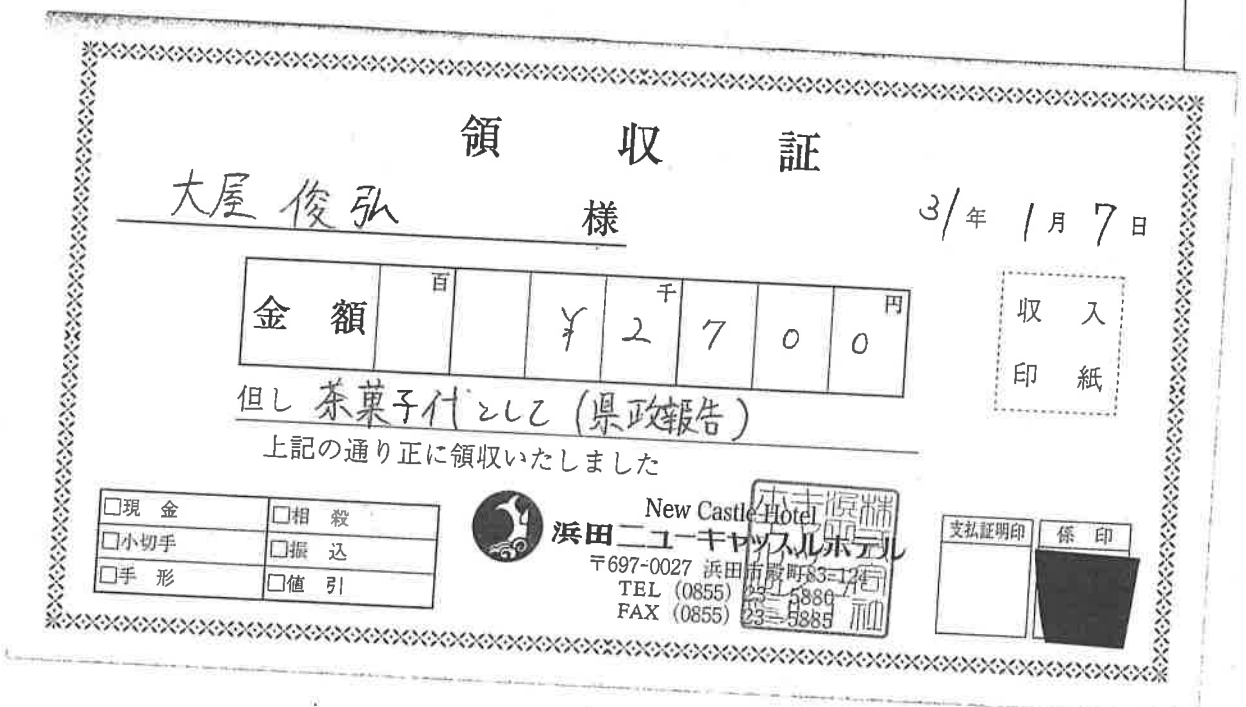 領収証
大屋 俊弘 様
31年 1月 7日
金額 百 千 円
¥2700
収入
印紙
但し 茶菓子代として (県政報告)
上記の通り正に領収いたしました
□現金 □相殺
□小切手 □振込
□手形 □値引
New Castle Hotel
浜田ニューキャッスルホテル
〒697-0027 浜田市殿町83-124
TEL (0855) 23-5880
FAX (0855) 23-5885
支払証明印 係印